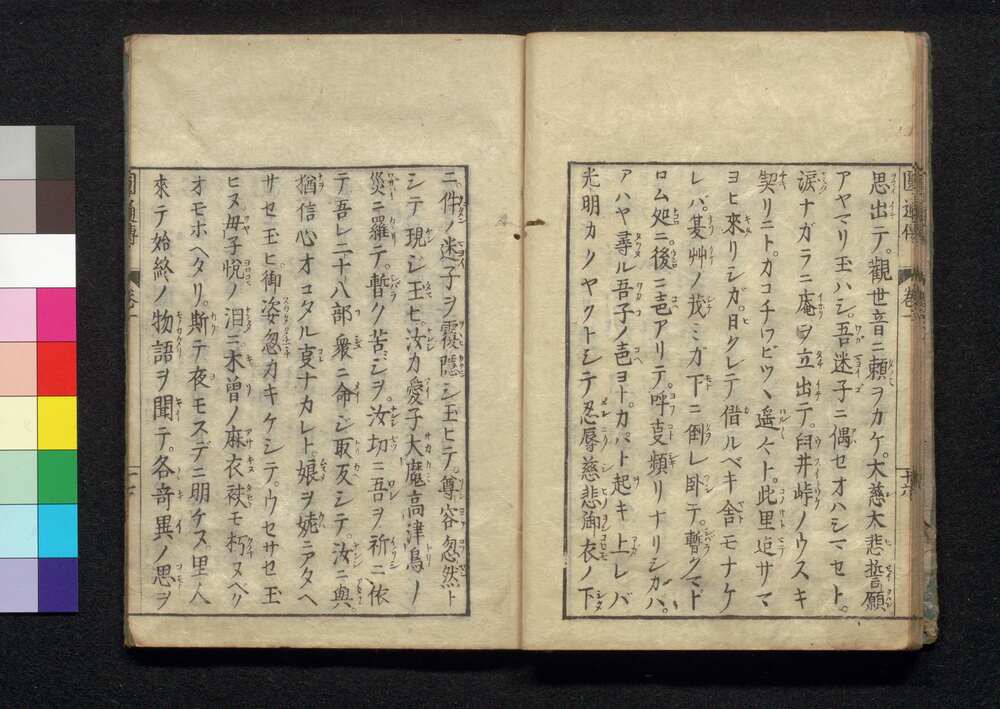 思出テ。觀世音ニ頼ヲカケ。大慈大悲誓願
アヤマリ玉ハシ。吾迷子ニ偶セオハシマセト。
涙ナガラニ庵ヲ立出テ。臼井峠ノウスキ
契リニト。カコチワビツヽ。遥々ト。此里迠サマ
ヨヒ來リシガ。日クレテ借ルベキ舎モナケ
レバ。某艸ノ茂ミガ下ニ倒レ臥テ。暫クマド
ロム処ニ。後ニ声アリテ。呼支頻リナリシガハ。
アハヤ尋ル吾子ノ声ヨト。カハト起キ上レバ
光明カクヤクトシテ忍辱慈悲御衣ノ下
ニ。件ノ迷子ヲ覆隠シ玉ヒテ。尊容忽然ト
シテ現ジ玉ヒ。汝カ愛子大魔高津鳥ノ
災ニ羅テ。暫ク苦シヲ。汝切ニ吾ヲ祈ニ依
テ吾レ二十八部衆ニ命ジ取反シテ。汝ニ與
猶信心オコタル支ナカレト。娘ヲ姥ニアタヘ
サセ玉ヒ。御姿忽カキケシテ。ウセサセ玉
ヒヌ。母子悦ノ泪ニ木曽ノ麻衣袂モ朽ヌベク
オモホヘタリ。斯テ夜モスデニ明ケヌ里人
來テ始終ノ物語ヲ聞テ。各奇異ノ思ヲ
圓通傳 卷一